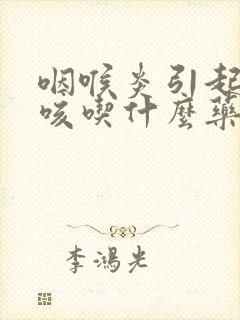 咽喉炎引起
咳喫什麼藥
李鴻光